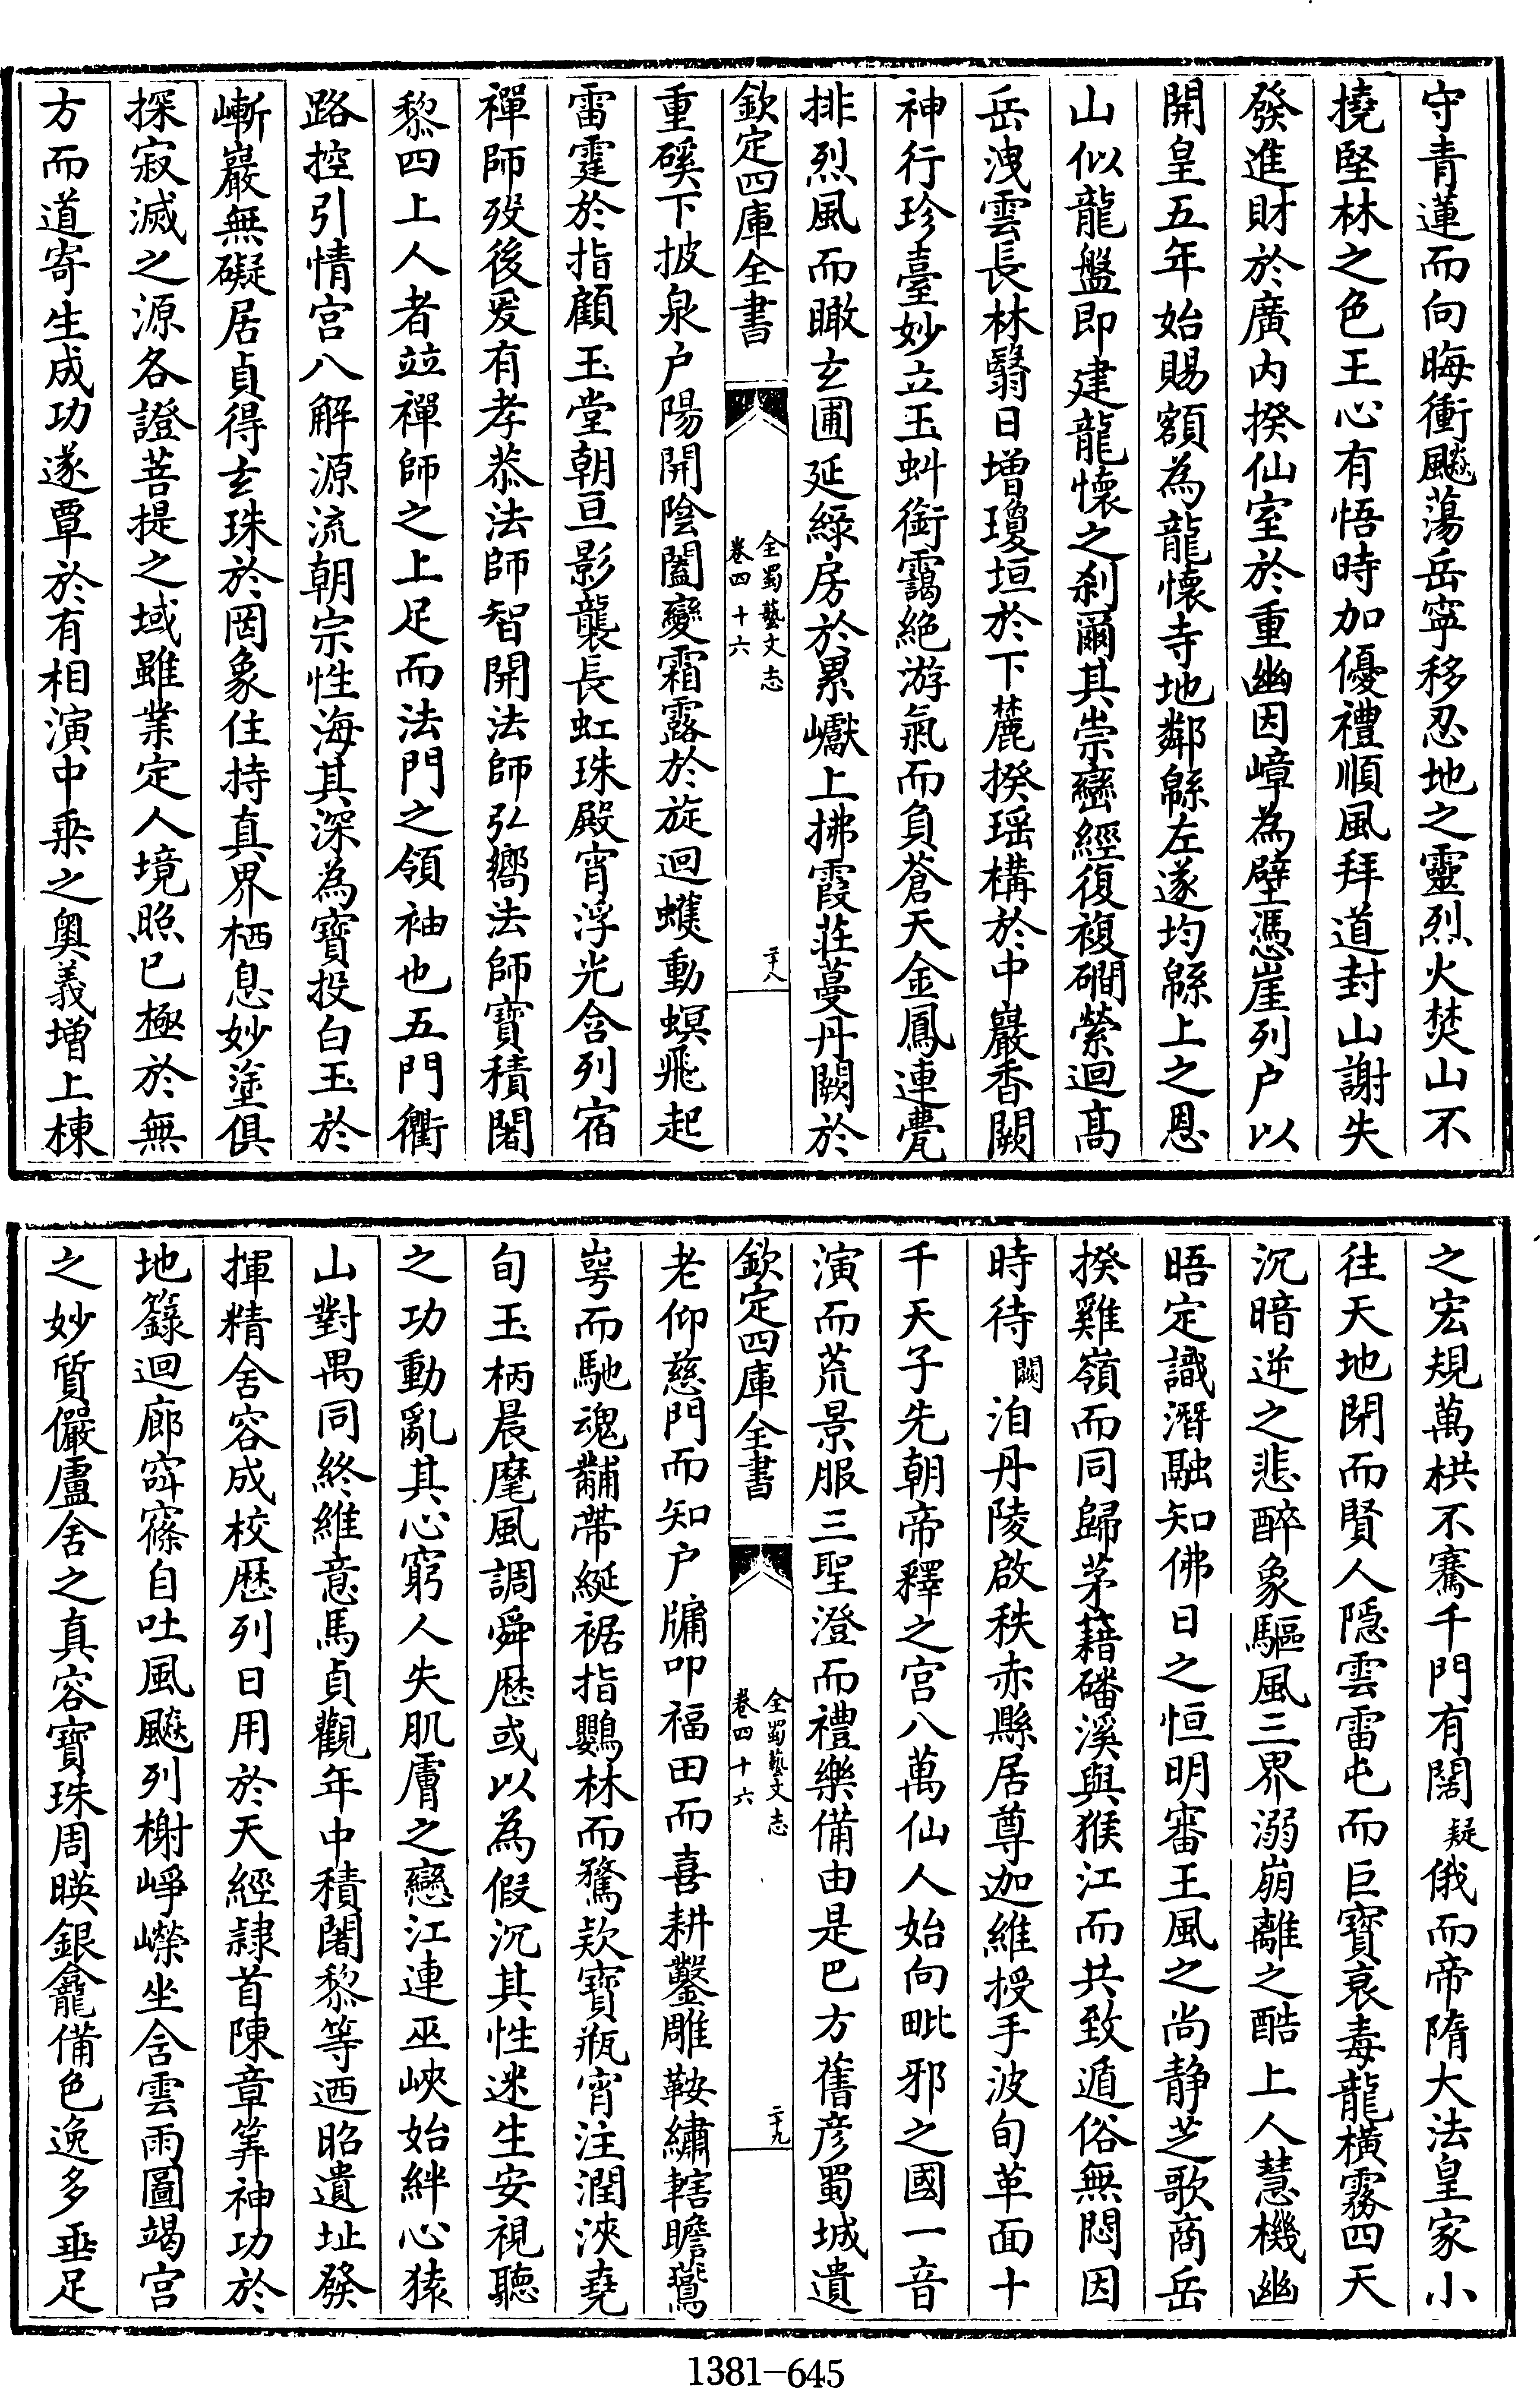 守青蓮而向晦衝飈蕩岳寧移忍地之靈烈火焚山不
撓堅林之色王心有悟時加優禮順風拜道封山謝失
發進財於廣内揆仙室於重幽因嶂為壁憑崖列户以
開皇五年始賜額為龍懷寺地鄰緜左遂均緜上之恩
山似龍盤即建龍懷之刹爾其崇巒經復複磵縈迴高
岳洩雲長林翳日增瓊垣於下麓揆瑶構於中巖香闕
神行珍臺妙立玉虯銜靄絶游氣而負蒼天金鳳連甍
排烈風而瞰玄圃延緑房於累巘上拂霞莊蔓丹闕於
欽定四庫全書
全蜀藝文志
卷四十六
二十八
重磎下披泉户陽開陰闔變霜露於旋迴蠖動螟飛起
雷霆於指顧玉堂朝亘影襲長虹珠殿宵浮光含列宿
禪師歿後爰有孝恭法師智開法師弘嚮法師寶積闍
黎四上人者竝禪師之上足而法門之領袖也五門衢
路控引情宫八解源流朝宗性海其深為寶投白玉於
嶄巖無礙居貞得玄珠於罔象住持真界栖息妙塗俱
探寂滅之源各證菩提之域雖業定人境照已極於無
方而道寄生成功遂覃於有相演中乘之奥義增上棟
之宏規萬栱不騫千門有闊疑俄而帝隋大法皇家小
往天地閉而賢人隠雲雷屯而巨寶衰毒龍橫霧四天
沉暗逆之悲醉象驅風三界溺崩離之酷上人慧機幽
晤定識潛融知佛日之恒明審王風之尚静芝歌商岳
揆雞嶺而同歸茅藉磻溪與猴江而共致遁俗無悶因
時待闕洎丹陵啟秩赤縣居尊迦維授手波旬革面十
千天子先朝帝釋之宫八萬仙人始向毗邪之國一音
演而荒景服三聖澄而禮樂備由是巴方舊彦蜀城遺
欽定四庫全書
全蜀藝文志
卷四十六
二十九
老仰慈門而知户牖叩福田而喜耕鑿雕鞍繡轄瞻鷲
崿而馳魂黼帶綖裾指鸚林而騖欵寶瓶宵注潤浹堯
旬玉柄晨麾風調舜歷或以為假沉其性迷生安視聽
之功動亂其心窮人失肌膚之戀江連巫峽始絆心猿
山對禺同終維意馬貞觀年中積闍黎等迺昭遺址發
揮精舍容成校歷列日用於天經隷首陳章筭神功於
地籙迴廊窣寮自吐風飈列榭崢嶸坐含雲雨圖竭宫
之妙質儼盧舍之真容寶珠周暎銀龕備色逸多垂足
1381-645